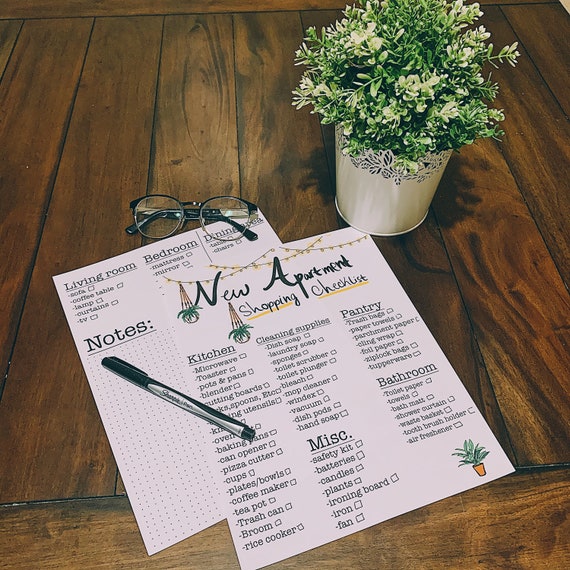 Living room
-sofa
-coffee table
-lamp
-curtains
-tv
Bedroom
-mattress
-mirror
Dining
-table
-chairs
Notes:
New Apartment
Shopping Checklist
Kitchen
-Microwave
-Toaster
-pots & pans
-blender
-cutting boards
spoons, Etc.
utensils
-knives
-oven
-baking pans
-can opener
-pizza cutter
-cups
-plates/bowls
-coffee maker
-tea pot
-Trash can
-Broom
-rice cooker
Cleaning supplies
-Dish soap
-laundry soap
-sponges
-toilet scrubber
-toilet plunger
-bleach
-mop cleaner
-windex
-vacuum
-dish pods
-hand soap
Misc.
-safety kit
-batteries
-candles
-plants
-ironing board
-iron
-fan
Pantry
-Trash bags
-paper towels
-parchment paper
-cling wrap
-foil paper
-ziplock bags
-tupperware
Bathroom
-Toilet paper
-towels
-bath mat
-shower curtain
-waste basket
-tooth brush holder
-air freshener
Sharpie Pen